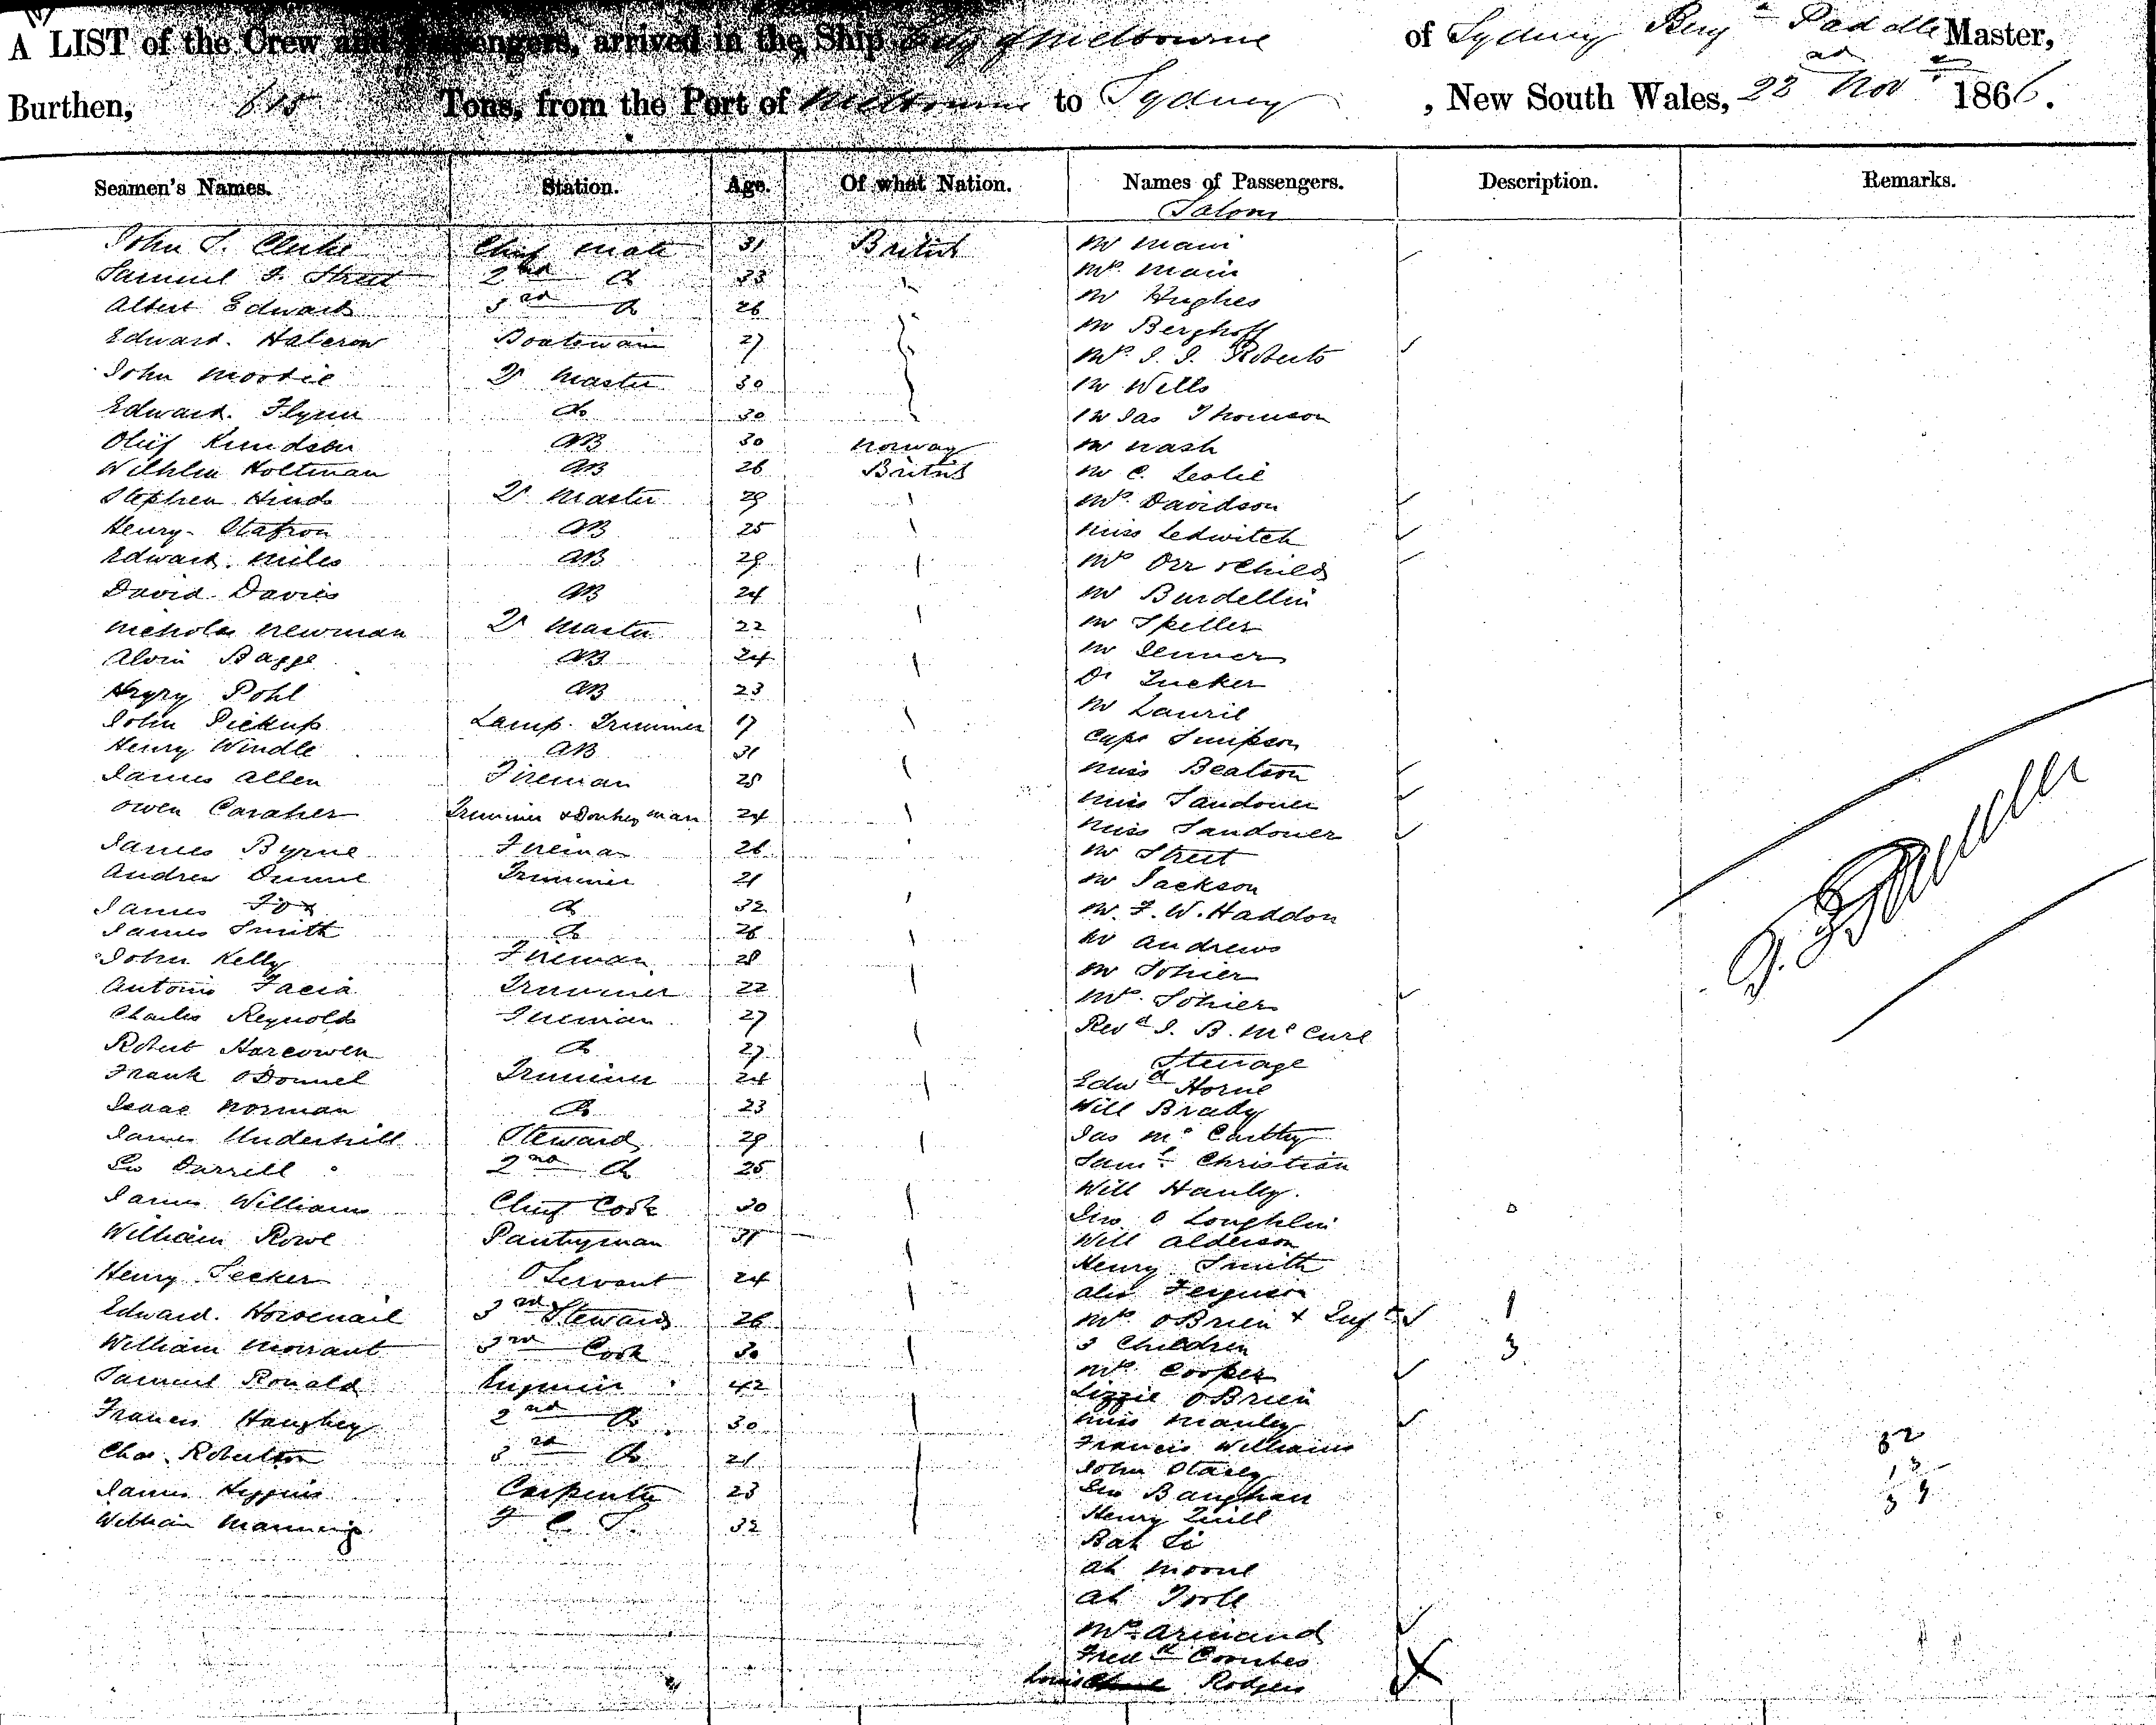 A LIST of the Crew and Passengers, arrived in the Ship City of Melbourne of Sydney Benjn Paddle Master,
Burthen, 615 Tons, from the Port of Melbourne to Sydney, New South Wales, 22nd Novr 1866.
Seamen's Names. Station. Age. Of what Nation. Names of Passengers. Description. Remarks.
Saloon
John S. Clerke Chief Mate 31 British Mr Main
Samuel F. Street 2nd Do 33 Mrs Main
Albert Edwards 3rd Do 26 Mr Hughes
Mr Berghoff
Edward Halcrow Boatswain 27 Mrs J. J. Roberts
John Moodie Qr Master 30 Mr Wells
Edward Flynn do 30 Mr Jas Thomson
Oluf Knudsen AB 30 Norway Mr Nash
Wilhlm Holtman AB 26 British Mr C. Leslie
Stephen Hinds Qr Master 29 Mrs Davidson
Henry AB 25 Miss Ledwitch
Edward Miles AB 29 Mrs Orr & Child
David Davies AB 24 Mr Burdellin
Nicholas Newman Qr Master 22 Mr Speller
Alvin Bagge AB 24 Mr Jenner
Dr Tucker
Hrgry Pohl AB 23 Mr Lauril
John Pickup Lamp Trimmer 17 Capt Simpson
Henry Windle AB 31
James Allen Fireman 25 Miss Beatson
Owen Caraher Trimmer & Donkeyman 24 Miss Sandover
Miss Sandover
James Byrne Fireman 26 Mr Street
Andrew Dunne Trimmer 21 Mr Jackson
James Fox do 32 Mr F. W. Haddon
James Smith do 26 Mr Andrews
John Kelly Fireman 28 Mr Sohier
Antonio Facia Trimmer 22 Mrs Sohier
Charles Reynolds Fireman 27 Revd J. B. McCure
Robert Harcowen do 27 Steerage
Frank ODonnel Trimmer 24 Edwd Horne
Isaac Norman Do 23 Will Brady
James Underhill Steward 29 Jas McCarthy
Geo Darrell 2nd do 25 Saml Christian
James Williams Chief Cook 30 Will Hanley
Jno O Loughlin
William Rowe Pantryman 31 Will Alderson
Henry Secker O Servant 24 Henry Smith
Alex Ferguson
Edward Horsenail 3rd Steward 26 Mrs OBrien & Inft 1
William Morrant 3rd Cook 30 3 Children 3
Samuel Ronald Engineer 42 Mrs Cooper
Lizzie OBrien
Francis Haughey 2nd Do 30 Miss Manley
Francis Williams 32
Chas. Robertson 3rd Do 21 John Stacey 13
James Higgins Carpenter 23 Geo Baughan
William Manning F C S. 32 Henry Quill
Bah Li
Ah Moone
Ah Toole
Mrs Armand
Fredk Coombes
Louis Rodgers